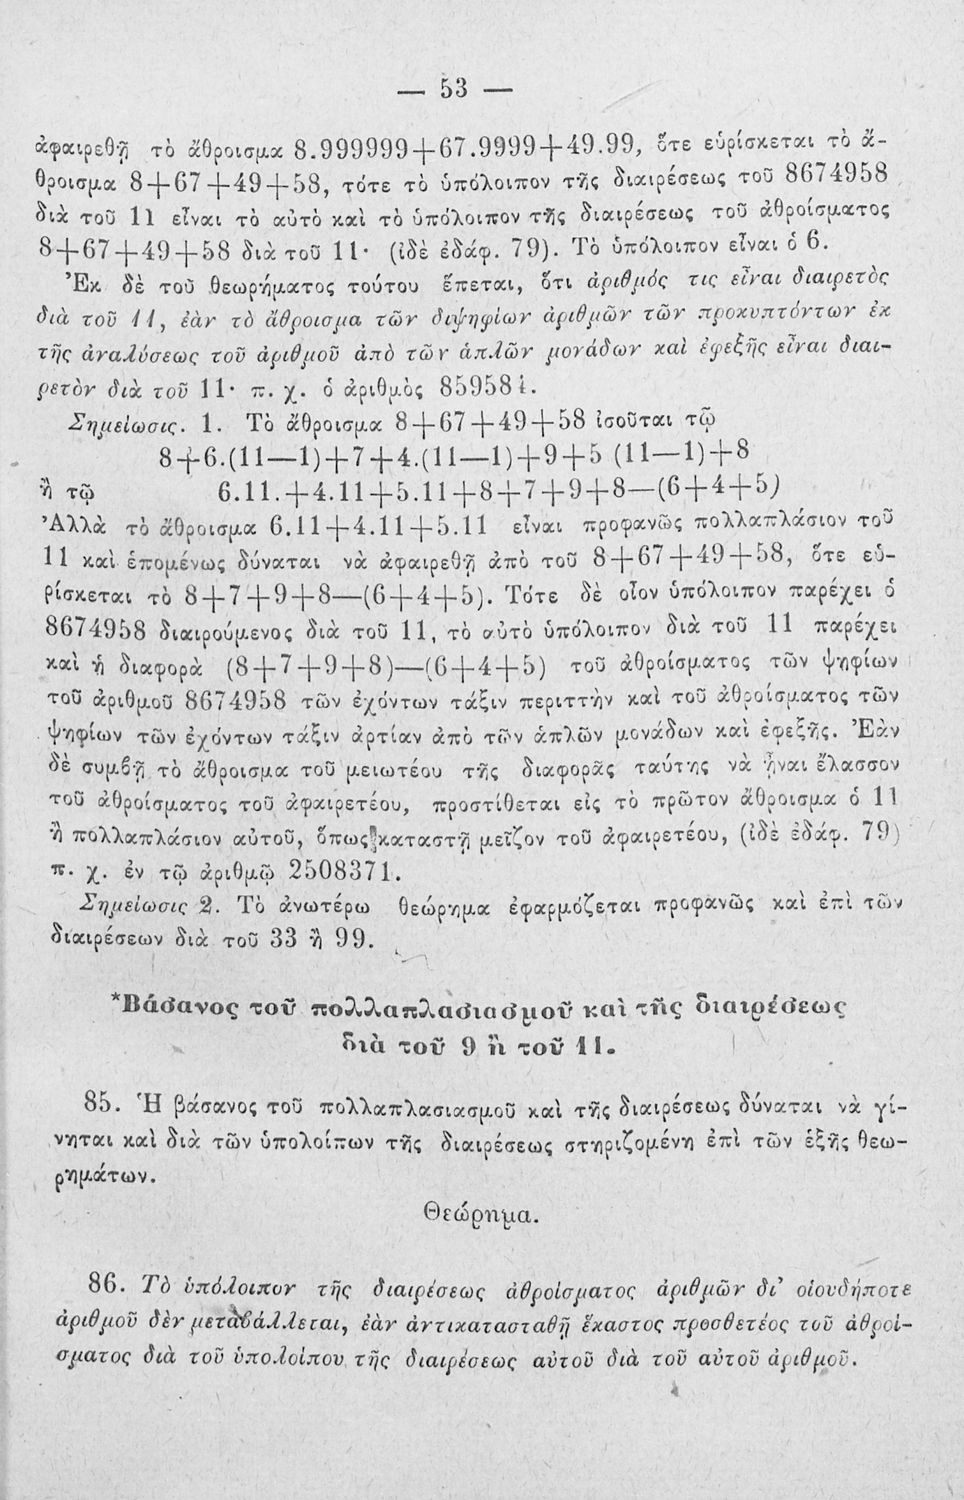 — 53 —
ἀφαιρεθῇ τὸ ἄθροισμα 8.999999+67.9999+49.99, ὅτε εὑρίσκεται τὸ ἄ-
θροισμα 8+67+49+58, τότε τὸ ὑπόλοιπον τῆς διαιρέσεως τοῦ 8674958
διὰ τοῦ 11 εἶναι τὸ αὐτὸ καὶ τὸ ὑπόλοιπον τῆς διαιρέσεως τοῦ ἀθροίσματος
8+67+49+58 διὰ τοῦ 11· (ἰδὲ ἐδάφ. 79). Τὸ ὑπόλοιπον εἶναι ὁ 6.
Ἐκ δὲ τοῦ θεωρήματος τούτου ἕπεται, ὅτι ἀριθμός τις εἶναι διαιρετὸς
διὰ τοῦ 11, ἐὰν τὸ ἄθροισμα τῶν διψηφίων ἀριθμῶν τῶν προκυπτόντων ἐκ
τῆς ἀναλύσεως τοῦ ἀριθμοῦ ἀπὸ τῶν ἁπλῶν μονάδων καὶ ἐφεξῆς εἶναι διαι-
ρετὸν διὰ τοῦ 11· π. χ. ὁ ἀριθμὸς 859584.
Σημείωσις. 1. Τὸ ἄθροισμα 8+67+49+58 ἰσοῦται τῷ
8+6.(11—1)+7+4.(11—1)+9+5 (11—1)+8
ἢ τῷ 6.11.+4.11+5.11+8+7+9+8—(6+4+5)
Ἀλλὰ τὸ ἄθροισμα 6.11+4.11+5.11 εἶναι προφανῶς πολλαπλάσιον τοῦ
11 καὶ ἑπομένως δύναται νὰ ἀφαιρεθῇ ἀπὸ τοῦ 8+67+49+58, ὅτε εὑ-
ρίσκεται τὸ 8+7+9+8—(6+4+5). Τότε δὲ οἷον ὑπόλοιπον παρέχει ὁ
8674958 διαιρούμενος διὰ τοῦ 11, τὸ αὐτὸ ὑπόλοιπον διὰ τοῦ 11 παρέχει
καὶ ἡ διαφορὰ (8+7+9+8)—(6+4+5) τοῦ ἀθροίσματος τῶν ψηφίων
τοῦ ἀριθμοῦ 8674958 τῶν ἐχόντων τάξιν περιττὴν καὶ τοῦ ἀθροίσματος τῶν
ψηφίων τῶν ἐχόντων τάξιν ἀρτίαν ἀπὸ τῶν ἁπλῶν μονάδων καὶ ἐφεξῆς. Ἐὰν
δὲ συμβῇ τὸ ἄθροισμα τοῦ μειωτέου τῆς διαφορᾶς ταύτης νὰ ἦναι ἔλασσον
τοῦ ἀθροίσματος τοῦ ἀφαιρετέου, προστίθεται εἰς τὸ πρῶτον ἄθροισμα ὁ 11
ἢ πολλαπλάσιον αὐτοῦ, ὅπως καταστῇ μεῖζον τοῦ ἀφαιρετέου, (ἰδὲ ἐδάφ. 79)
π. χ. ἐν τῷ ἀριθμῷ 2508371.
Σημείωσις 2. Τὸ ἀνωτέρω θεώρημα ἐφαρμόζεται προφανῶς καὶ ἐπὶ τῶν
διαιρέσεων διὰ τοῦ 33 ἢ 99.
*Βάσανος τοῦ πολλαπλασιασμοῦ καὶ τῆς διαιρέσεως
διὰ τοῦ 9 ἢ τοῦ 11.
85. Ἡ βάσανος τοῦ πολλαπλασιασμοῦ καὶ τῆς διαιρέσεως δύναται νὰ γί-
νηται καὶ διὰ τῶν ὑπολοίπων τῆς διαιρέσεως στηριζομένη ἐπὶ τῶν ἑξῆς θεω-
ρημάτων.
Θεώρημα.
86. Τὸ ὑπόλοιπον τῆς διαιρέσεως ἀθροίσματος ἀριθμῶν δι' οἱουδήποτε
ἀριθμοῦ δὲν μεταβάλλεται, ἐὰν ἀντικατασταθῇ ἕκαστος προσθετέος τοῦ ἀθροί-
σματος διὰ τοῦ ὑπολοίπου τῆς διαιρέσεως αὐτοῦ διὰ τοῦ αὐτοῦ ἀριθμοῦ.